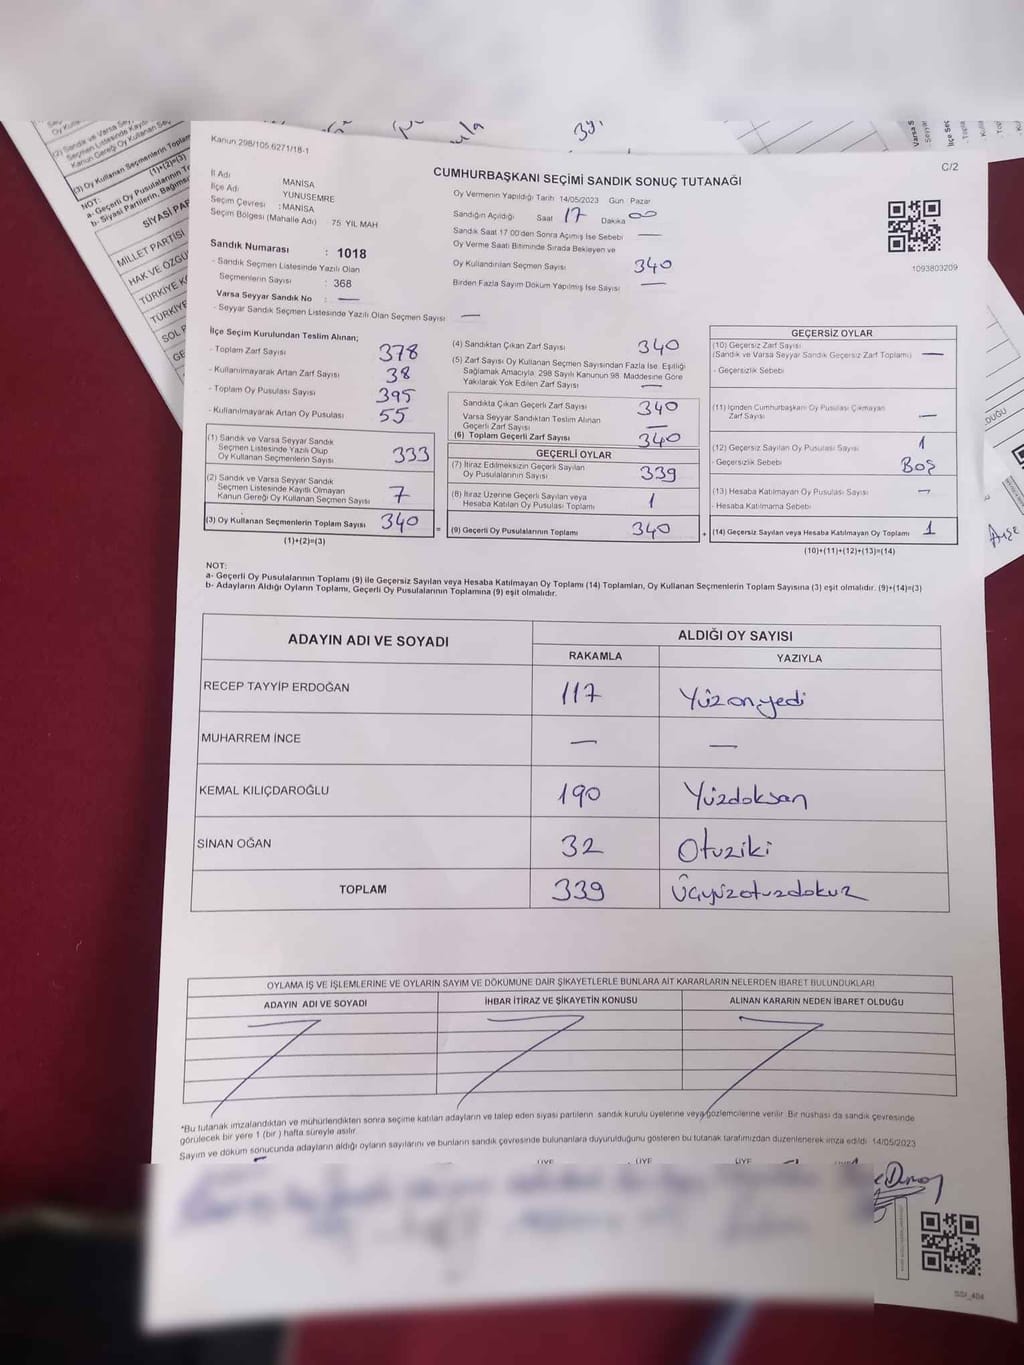 Kanun 298/105 6271/18-1
C/2
CUMHURBAŞKANI SEÇİMİ SANDIK SONUÇ TUTANAĞI
İl Adı MANİSA
İlçe Adı YUNUSEMRE
Seçim Çevresi : MANİSA
Seçim Bölgesi (Mahalle Adı) 75 YIL MAH
Sandık Numarası : 1018
- Sandık Seçmen Listesinde Yazılı Olan
Seçmenlerin Sayısı : 368
Varsa Seyyar Sandık No : —
- Seyyar Sandık Seçmen Listesinde Yazılı Olan Seçmen Sayısı —
Oy Vermenin Yapıldığı Tarih 14/05/2023 Gün Pazar
Sandığın Açıldığı Saat 17 Dakika 00
Sandık Saat 17 00'den Sonra Açımış İse Sebebi —
Oy Verme Saati Bitiminde Sırada Bekleyen ve
Oy Kullandırılan Seçmen Sayısı 340
Birden Fazla Sayım Döküm Yapılmış İse Sayısı —
1093803209
İlçe Seçim Kurulundan Teslim Alınan;
- Toplam Zarf Sayısı 378
- Kullanılmayarak Artan Zarf Sayısı 38
- Toplam Oy Pusulası Sayısı 395
- Kullanılmayarak Artan Oy Pusulası 55
(1) Sandık ve Varsa Seyyar Sandık
Seçmen Listesinde Yazılı Olup
Oy Kullanan Seçmenlerin Sayısı 333
(2) Sandık ve Varsa Seyyar Sandık
Seçmen Listesinde Kayıtlı Olmayan
Kanun Gereği Oy Kullanan Seçmen Sayısı 7
(3) Oy Kullanan Seçmenlerin Toplam Sayısı 340
(1)+(2)=(3)
(4) Sandıktan Çıkan Zarf Sayısı 340
(5) Zarf Sayısı Oy Kullanan Seçmen Sayısından Fazla İse, Eşitliği
Sağlamak Amacıyla, 298 Sayılı Kanunun 98. Maddesine Göre
Yakılarak Yok Edilen Zarf Sayısı —
Sandıkta Çıkan Geçerli Zarf Sayısı 340
Varsa Seyyar Sandıktan Teslim Alınan
Geçerli Zarf Sayısı —
(6) Toplam Geçerli Zarf Sayısı 340
GEÇERLİ OYLAR
(7) İtiraz Edilmeksizin Geçerli Sayılan
Oy Pusulalarının Sayısı 339
(8) İtiraz Üzerine Geçerli Sayılan veya
Hesaba Katılan Oy Pusulası Toplamı 1
= (9) Geçerli Oy Pusulalarının Toplamı 340 +
GEÇERSİZ OYLAR
(10) Geçersiz Zarf Sayısı
(Sandık ve Varsa Seyyar Sandık Geçersiz Zarf Toplamı) —
- Geçersizlik Sebebi
(11) İçinden Cumhurbaşkanı Oy Pusulası Çıkmayan
Zarf Sayısı —
(12) Geçersiz Sayılan Oy Pusulası Sayısı 1
- Geçersizlik Sebebi Boş
(13) Hesaba Katılmayan Oy Pusulası Sayısı —
- Hesaba Katılmama Sebebi
(14) Geçersiz Sayılan veya Hesaba Katılmayan Oy Toplamı 1
(10)+(11)+(12)+(13)=(14)
NOT:
a- Geçerli Oy Pusulalarının Toplamı (9) ile Geçersiz Sayılan veya Hesaba Katılmayan Oy Toplamı (14) Toplamları, Oy Kullanan Seçmenlerin Toplam Sayısına (3) eşit olmalıdır. (9)+(14)=(3)
b- Adayların Aldığı Oyların Toplamı, Geçerli Oy Pusulalarının Toplamına (9) eşit olmalıdır.
ADAYIN ADI VE SOYADI ALDIĞI OY SAYISI
RAKAMLA YAZIYLA
RECEP TAYYİP ERDOĞAN 117 Yüzonyedi
MUHARREM İNCE — —
KEMAL KILIÇDAROĞLU 190 Yüzdoksan
SİNAN OĞAN 32 Otuziki
TOPLAM 339 Üçyüzotuzdokuz
OYLAMA İŞ VE İŞLEMLERİNE VE OYLARIN SAYIM VE DÖKÜMÜNE DAİR ŞİKAYETLERLE BUNLARA AİT KARARLARIN NELERDEN İBARET BULUNDUKLARI
ADAYIN ADI VE SOYADI İHBAR İTİRAZ VE ŞİKAYETİN KONUSU ALINAN KARARIN NEDEN İBARET OLDUĞU
*Bu tutanak imzalandıktan ve mühürlendikten sonra seçime katılan adayların ve talep eden siyasi partilerin sandık kurulu üyelerine veya gözlemcilerine verilir. Bir nüshası da sandık çevresinde
görülecek bir yere 1 (bir) hafta süreyle asılır.
Sayım ve döküm sonucunda adayların aldığı oyların sayılarını ve bunların sandık çevresinde bulunanlara duyurulduğunu gösteren bu tutanak tarafımızdan düzenlenerek imza edildi 14/05/2023
ÜYE ÜYE ÜYE
SSI_404
(3) Oy Kullanan Seçmenlerin Toplam
(1)+(2)=(3)
NOT:
a- Geçerli Oy Pusulalarının
b- Siyasi Partilerin, Bağımsız
SİYASİ PAR
MİLLET PARTİSİ
HAK VE ÖZGÜ
TÜRKİYE K
TÜRKİYE
SOL P
GE